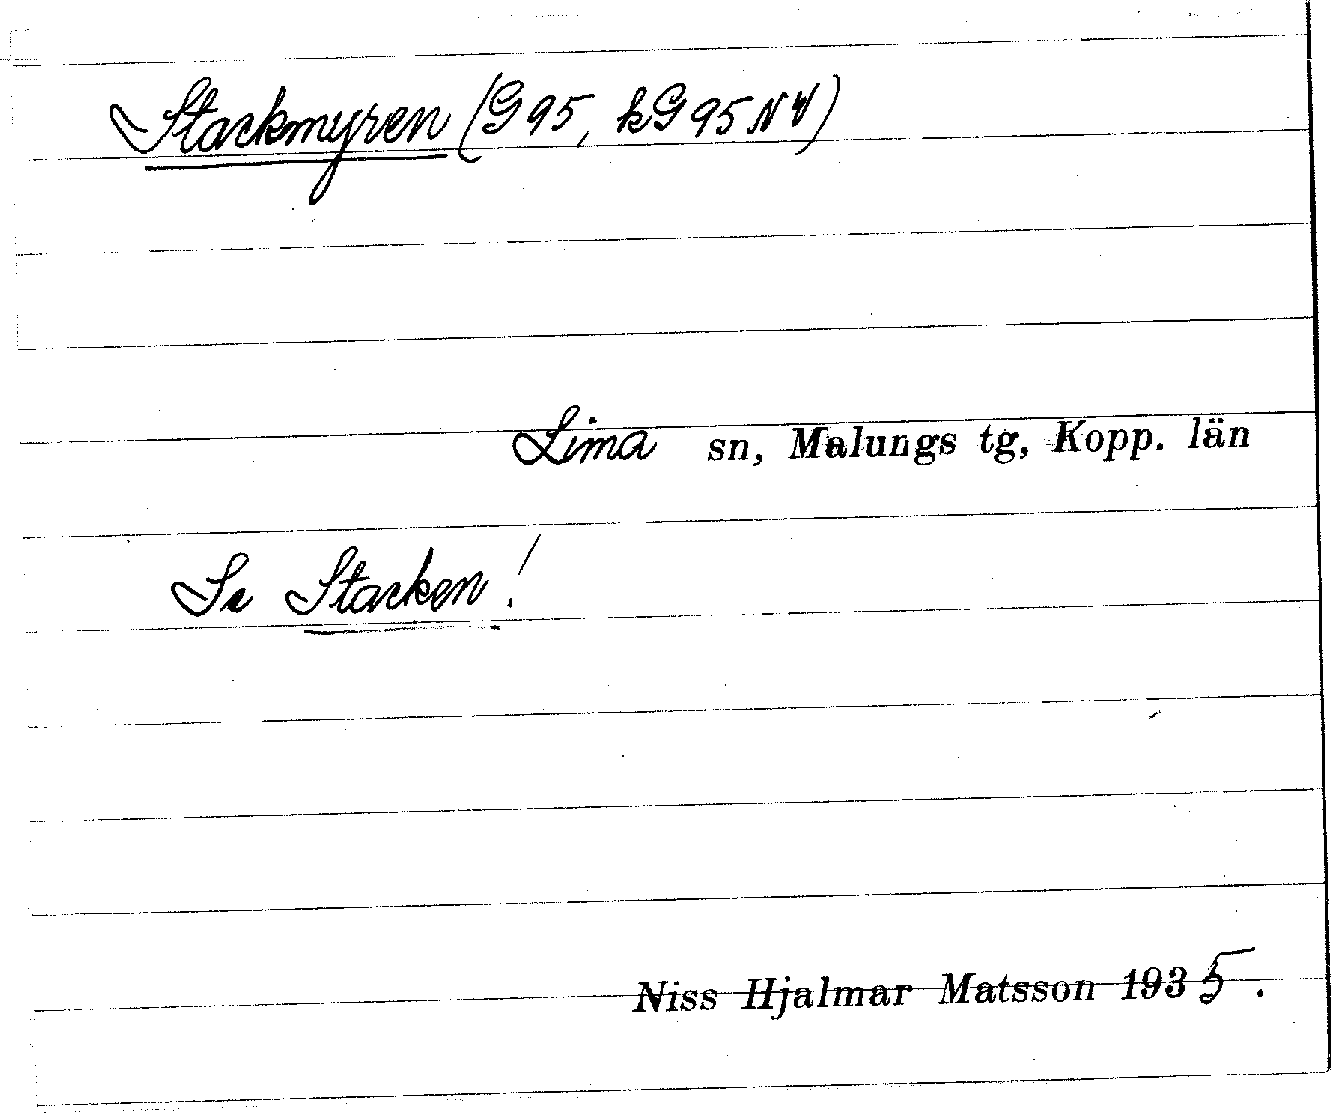 Stackmyren (G 95, kG 95 NV)
Lima sn, Malungs tg, Kopp. län
Se Stacken!
Niss Hjalmar Matsson 1935.